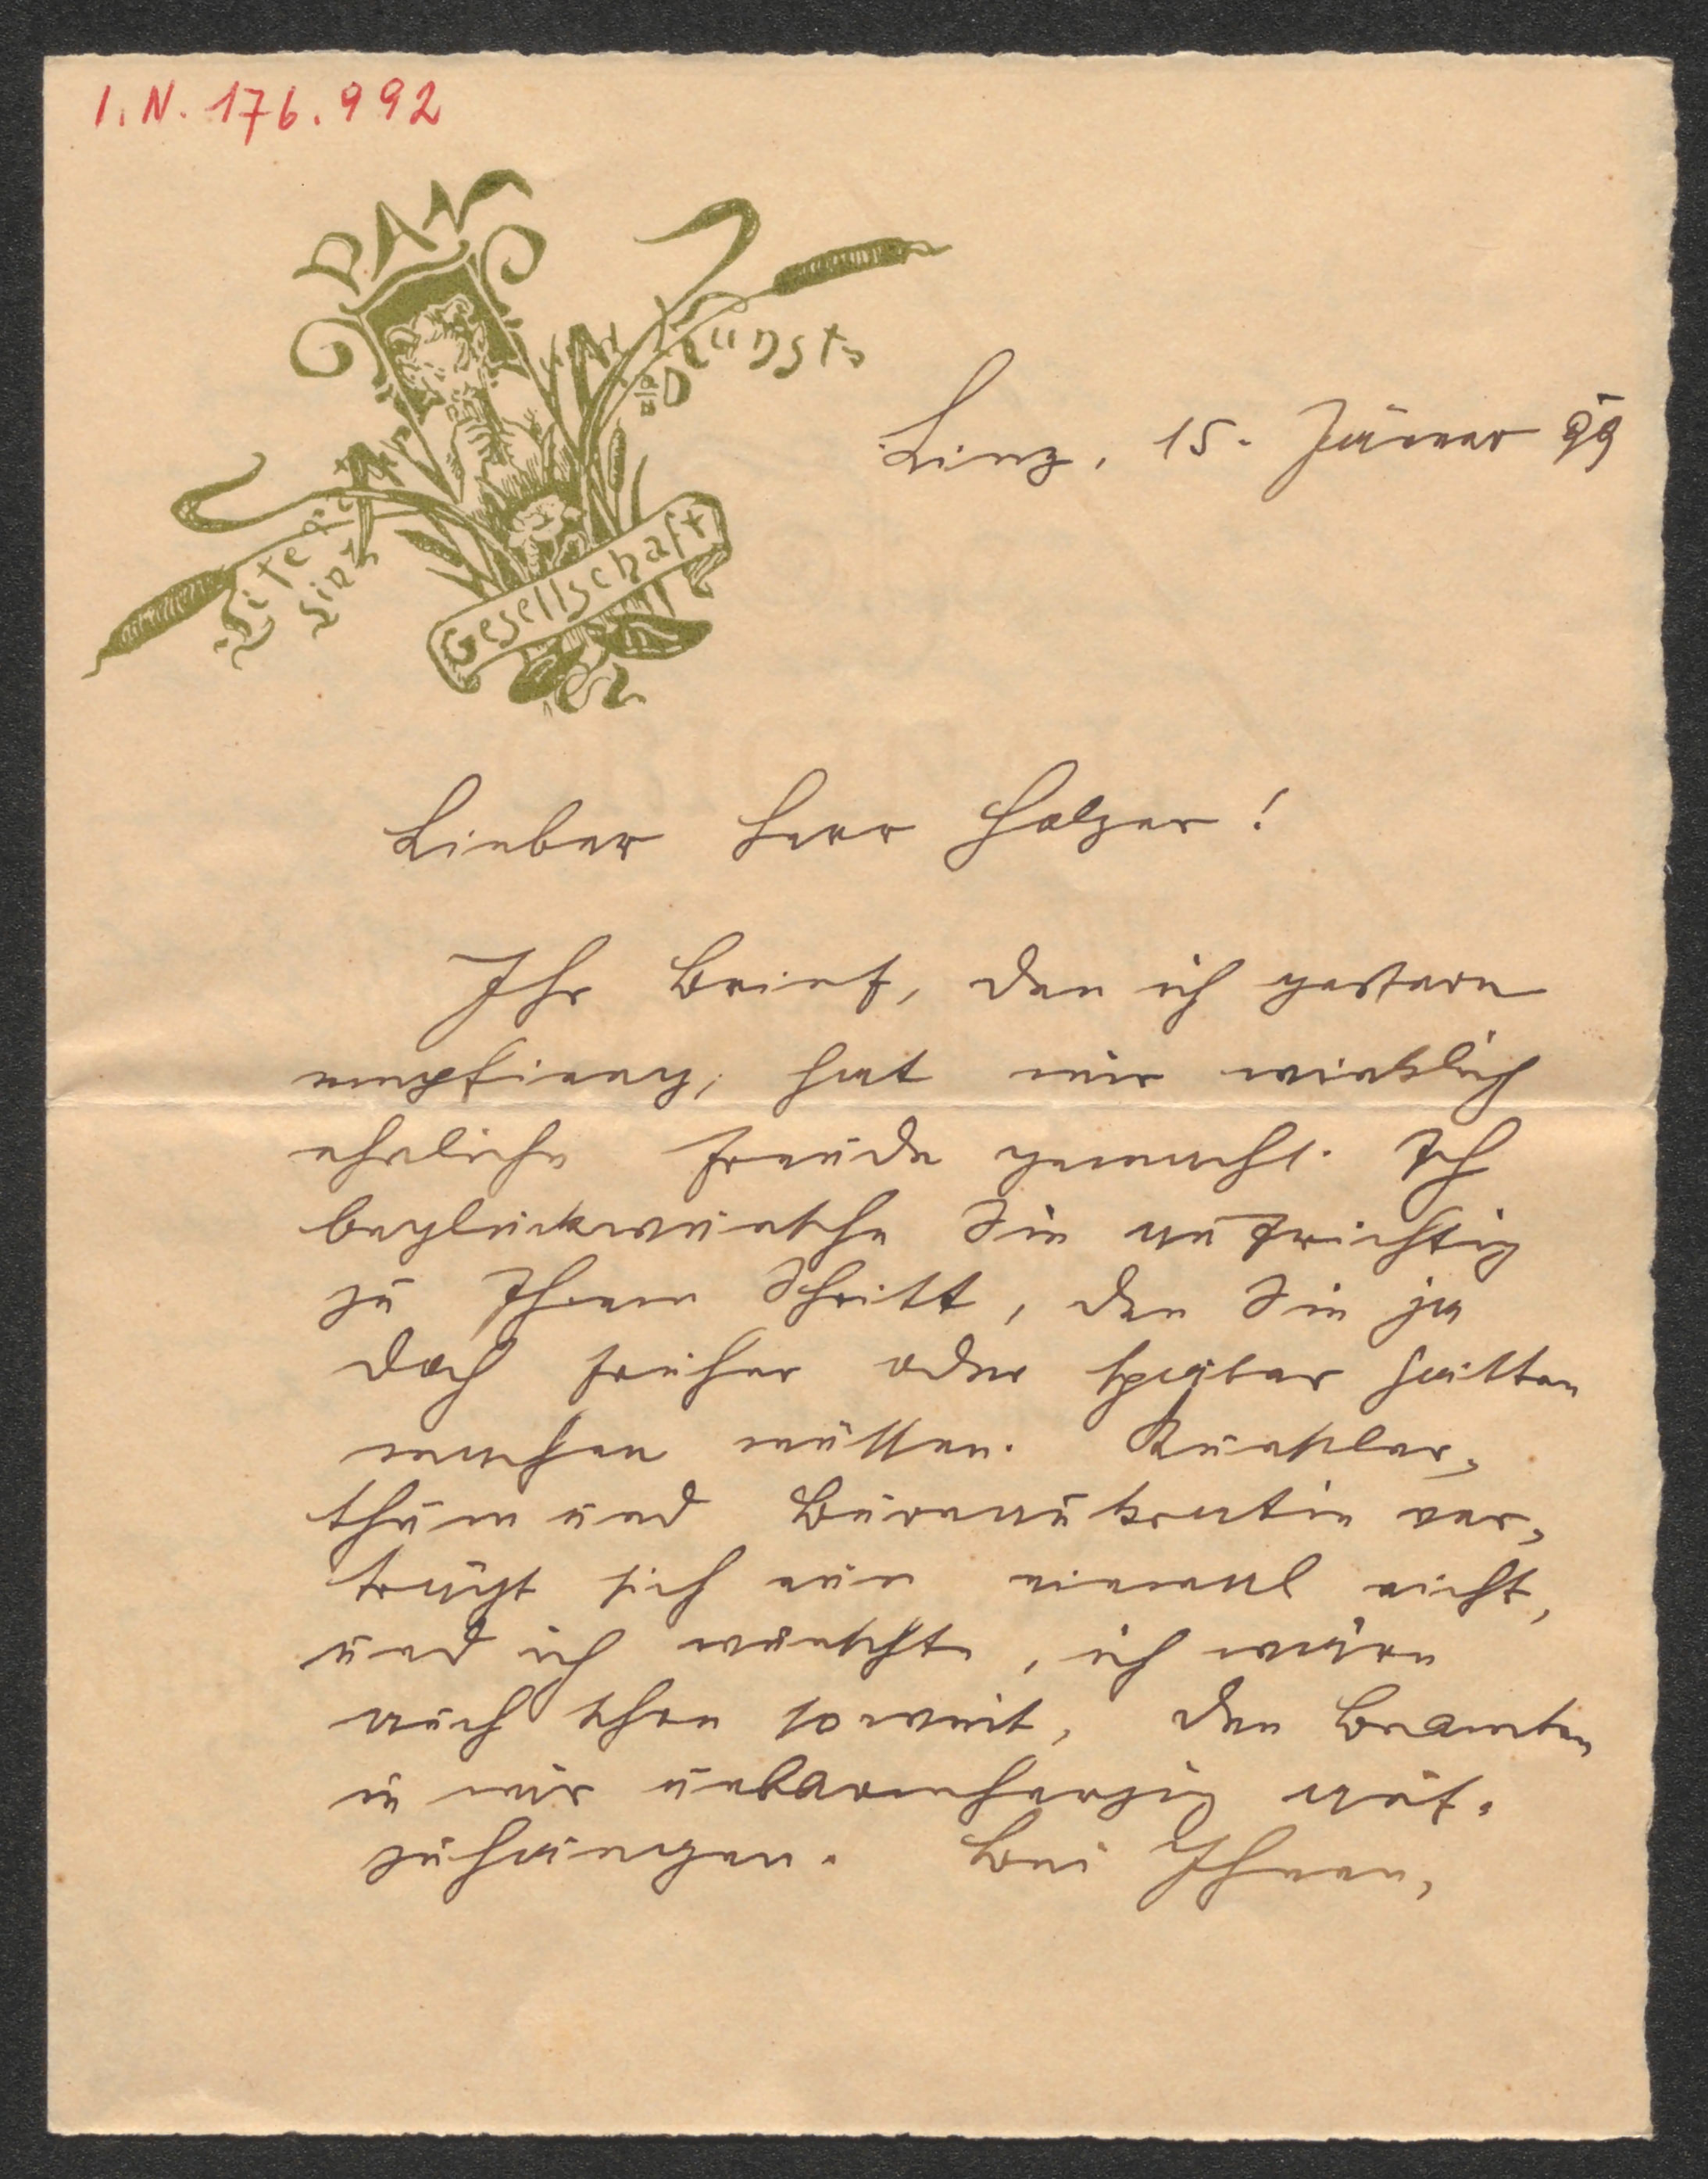 I. N. 176.992
PAN
Literatur und Kunst-
Linz a/D
Gesellschaft
Linz, 15. Jänner 99
Lieber Herr Holzer!
Ihr Brief, den ich gestern
empfieng, hat mir wirklich
ehrliche Freude gemacht. Ich
beglückwünsche Sie aufrichtig
zu Ihrem Schritt, den Sie ja
doch früher oder später hätten
machen müssen. Künstler-
thum und Bureaukratie ver-
trägt sich nun einmal nicht,
und ich wünschte, ich wäre
auch schon soweit, den Beamten
in mir unbarmherzig auf-
zuhängen. Bei Ihnen,